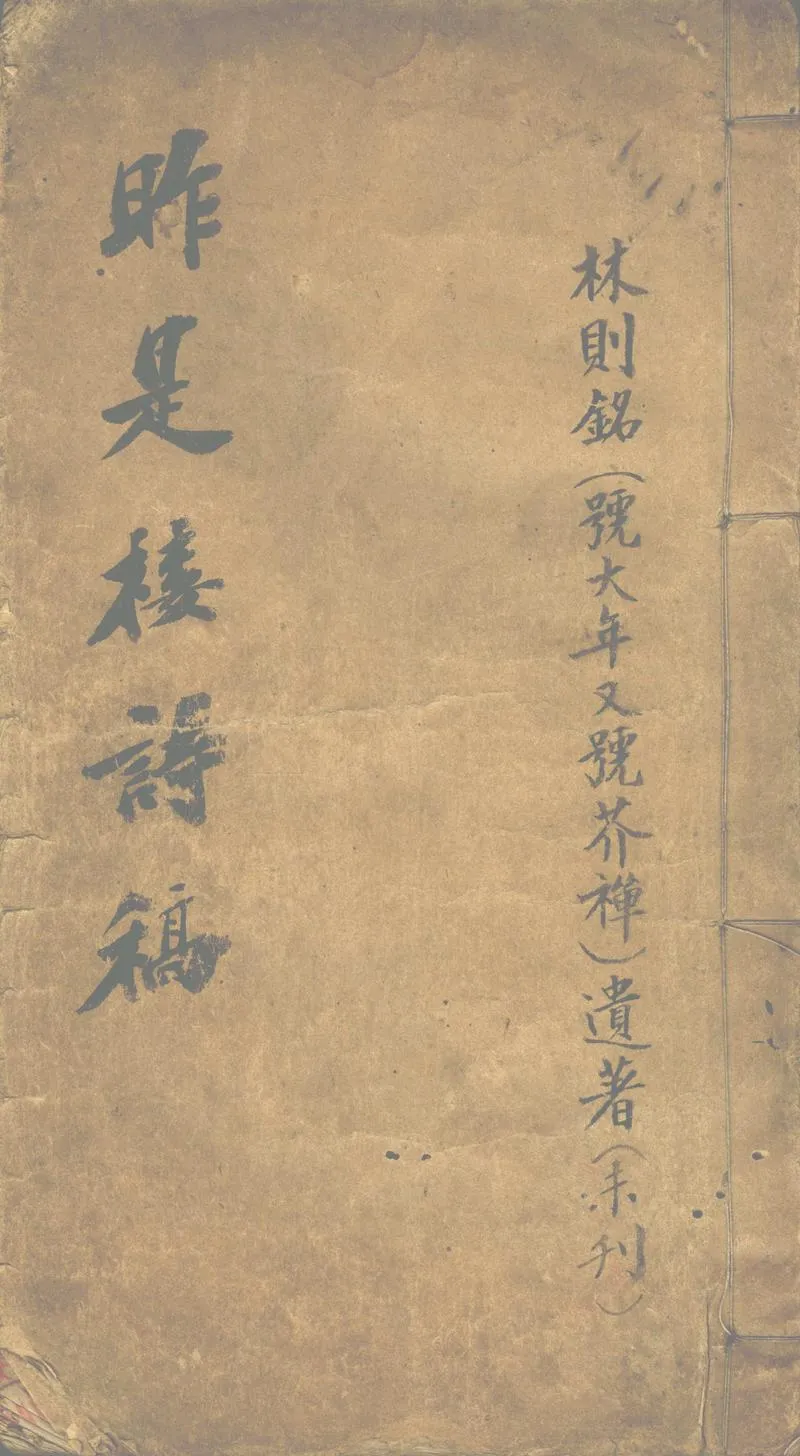 林則銘（號大年又號芥禪）遺著（未刊）
昨是楼詩稿